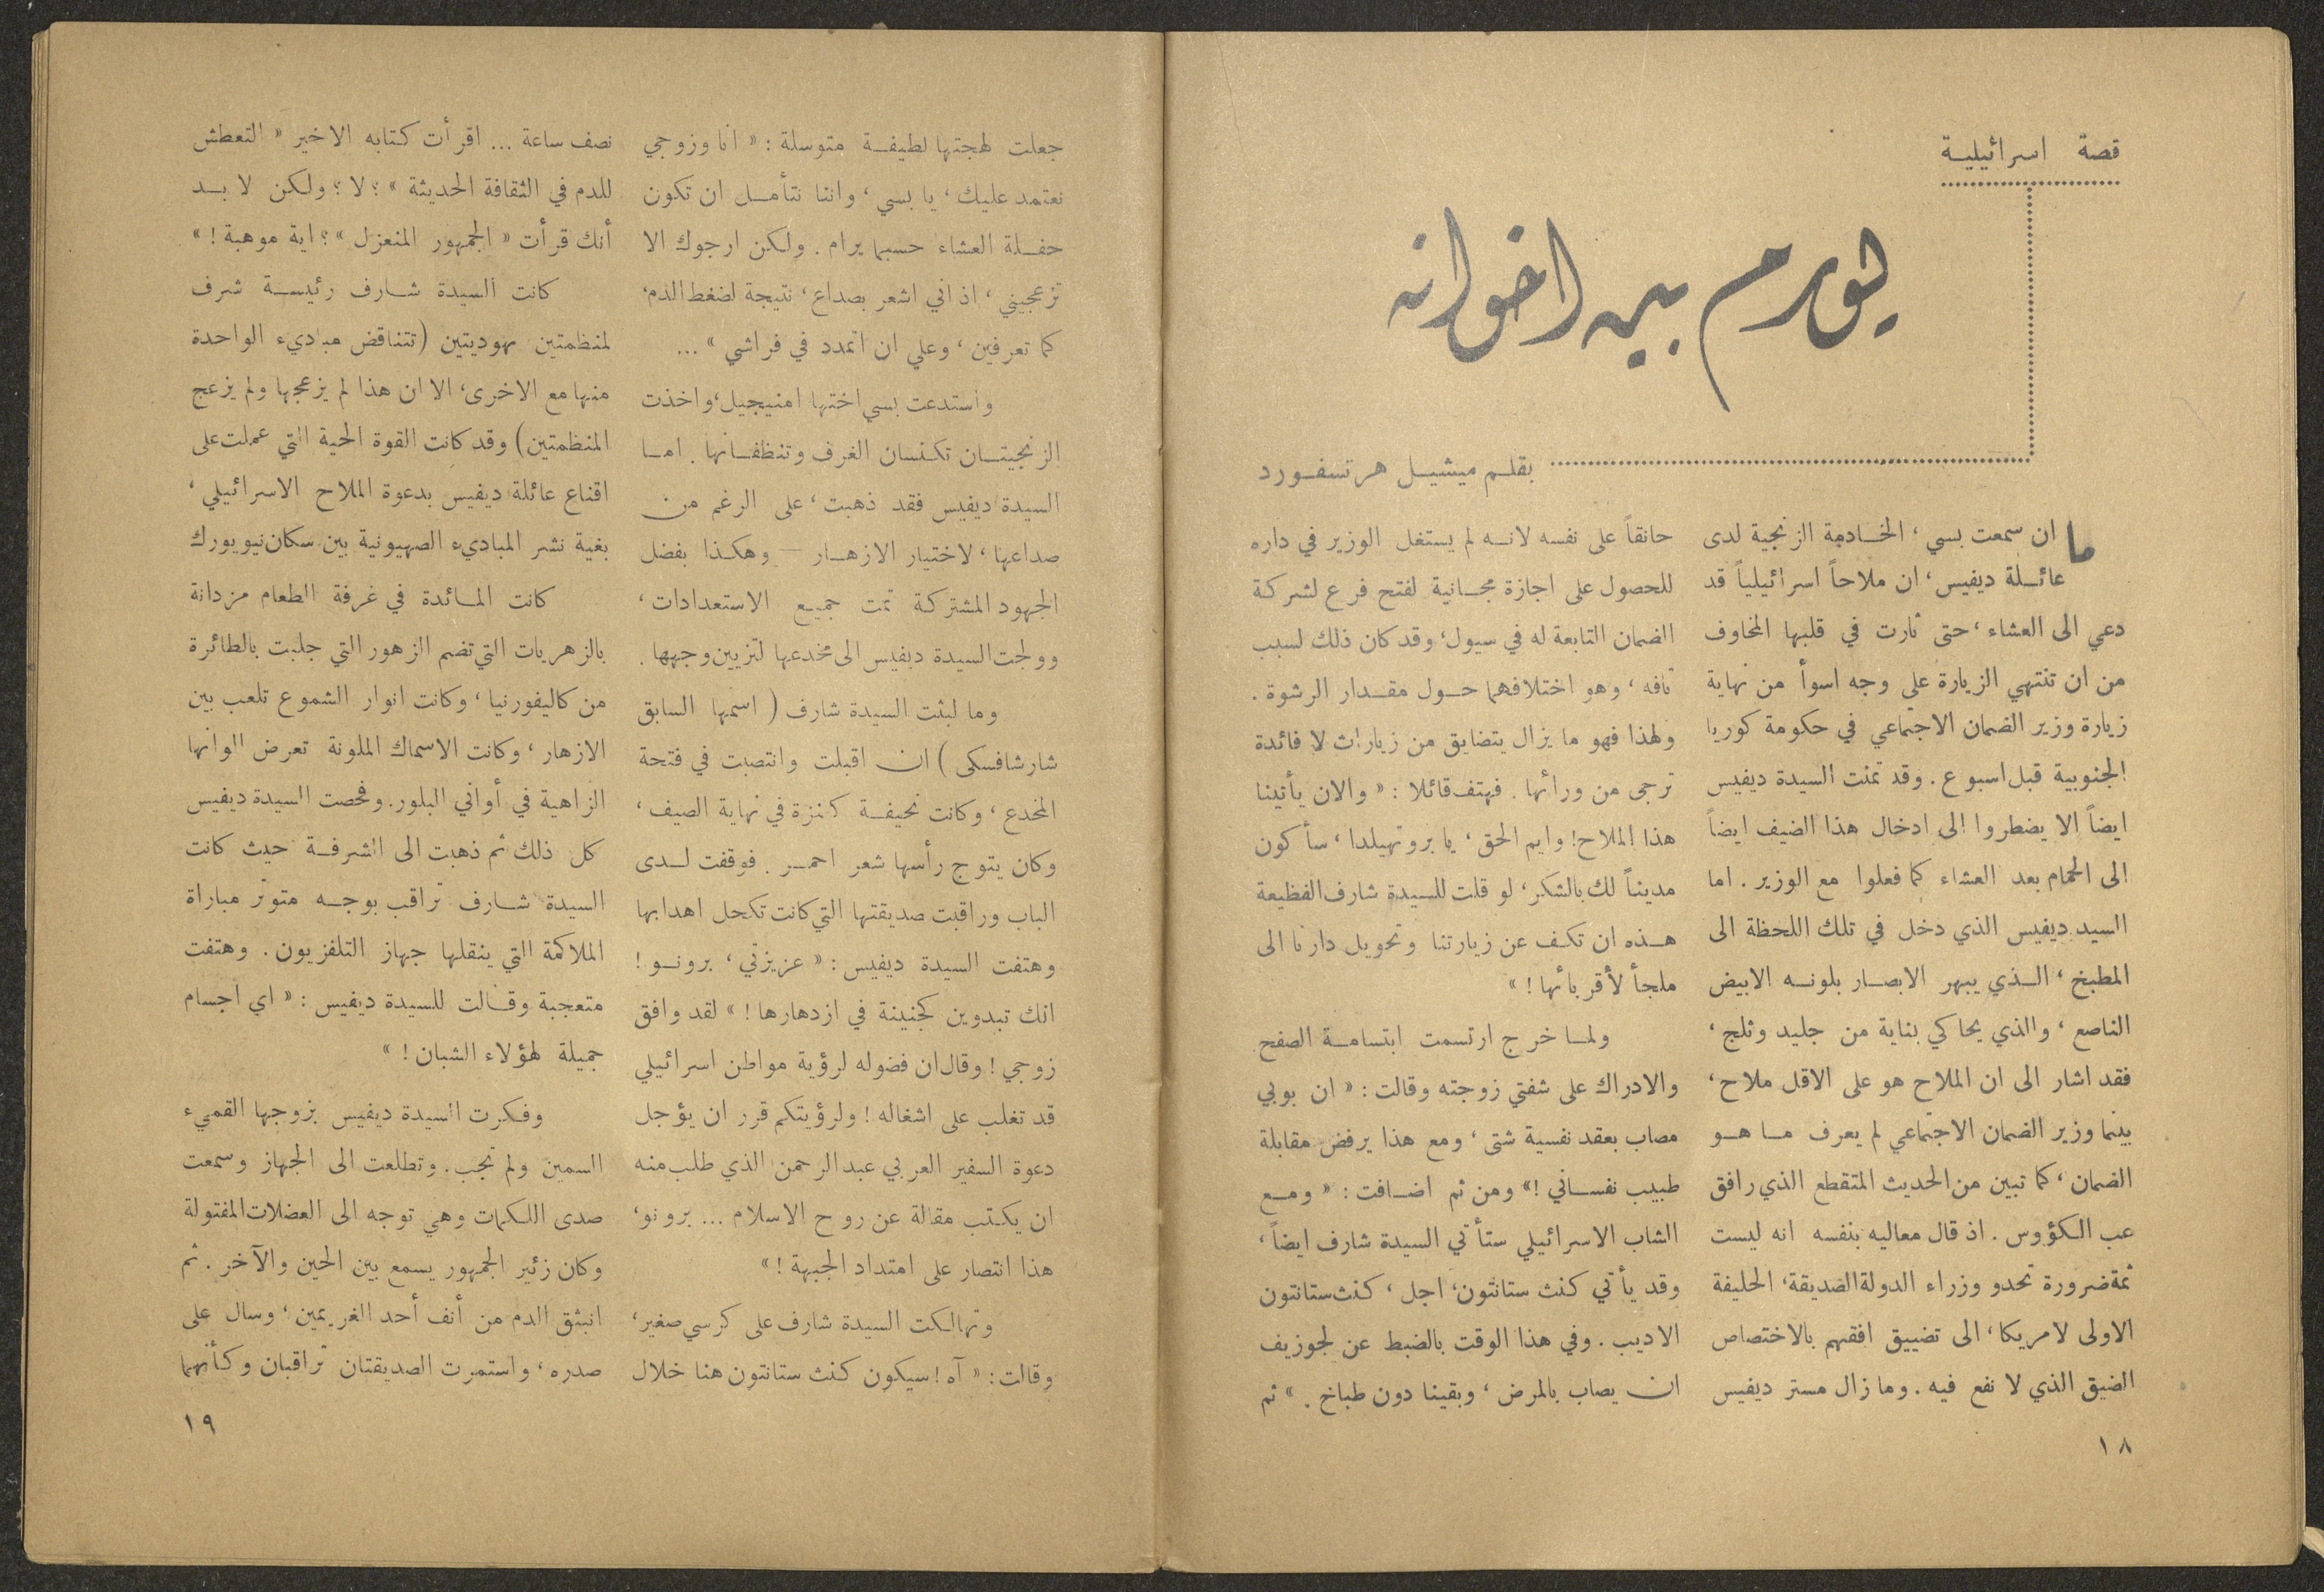 قصة اسرائيلية
يورم بين اخوانه
بقلم ميشيل هرتسفورد
ما ان سمعت بسي ، الخادمة الزنجية لدى
عائلة ديفيس ، ان ملاحاً اسرائيلياً قد
دعي الى العشاء ، حتى ثارت في قلبها المخاوف
من ان تنتهي الزيارة على وجه اسوأ من نهاية
زيارة وزير الضمان الاجتماعي في حكومة كوريا
الجنوبية قبل اسبوع . وقد تمنت السيدة ديفيس
ايضاً الا يضطروا الى ادخال هذا الضيف ايضاً
الى الحمام بعد العشاء كما فعلوا مع الوزير . اما
السيد ديفيس الذي دخل في تلك اللحظة الى
المطبخ ، الذي يبهر الابصار بلونه الابيض
الناصع ، والذي يحاكي بناية من جليد وثلج ،
فقد اشار الى ان الملاح هو على الاقل ملاح ،
بينما وزير الضمان الاجتماعي لم يعرف ما هو
الضمان ، كما تبين من الحديث المتقطع الذي رافق
عب الكؤوس . اذ قال معاليه بنفسه انه ليست
ثمة ضرورة تحدو وزراء الدولة الصديقة ، الحليفة
الاولى لامريكا ، الى تضييق افقهم بالاختصاص
الضيق الذي لا نفع فيه . وما زال مستر ديفيس
حانقاً على نفسه لانه لم يستغل الوزير في داره
للحصول على اجازة مجانية لفتح فرع لشركة
الضمان التابعة له في سيول ، وقد كان ذلك لسبب
تافه ، وهو اختلافهما حول مقدار الرشوة .
ولهذا فهو ما يزال يتضايق من زيارات لا فائدة
ترجى من ورائها . فهتف قائلا : « والان يأتينا
هذا الملاح ! وايم الحق ، يا برونهيلدا ، سأكون
مديناً لك بالشكر ، لو قلت للسيدة شارف الفظيعة
هذه ان تكف عن زيارتنا وتحويل دارنا الى
ملجأ لأقربائها ! »
ولما خرج ارتسمت ابتسامة الصفح
والادراك على شفتي زوجته وقالت : « ان بوبي
مصاب بعقد نفسية شتى ، ومع هذا يرفض مقابلة
طبيب نفساني ! » ومن ثم اضافت : « ومع
الشاب الاسرائيلي ستأتي السيدة شارف ايضاً ،
وقد يأتي كنث ستانتون ، اجل ، كنث ستانتون
الاديب . وفي هذا الوقت بالضبط عن لجوزيف
ان يصاب بالمرض ، وبقينا دون طباخ . » ثم
١٨
جعلت لهجتها لطيفة متوسلة : « انا وزوجي
نعتمد عليك ، يا بسي ، واننا نتأمل ان تكون
حفلة العشاء حسبما يرام . ولكن ارجوك الا
تزعجيني ، اذ اني اشعر بصداع ، نتيجة لضغط الدم ،
كما تعرفين ، وعلي ان اتمدد في فراشي » ...
واستدعت بسي اختها امنيجيل ، واخذت
الزنجيتان تكنسان الغرف وتنظفانها . اما
السيدة ديفيس فقد ذهبت ، على الرغم من
صداعها ، لاختيار الازهار – وهكذا بفضل
الجهود المشتركة تمت جميع الاستعدادات ،
وولجت السيدة ديفيس الى مخدعها لتزيين وجهها .
وما لبثت السيدة شارف ( اسمها السابق
شارشافسكى ) ان اقبلت وانتصبت في فتحة
المخدع ، وكانت نحيفة كنزة في نهاية الصيف ،
وكان يتوج رأسها شعر احمر . فوقفت لدى
الباب وراقبت صديقتها التي كانت تكحل اهدابها
وهتفت السيدة ديفيس : « عزيزتي ، برونو !
انك تبدوين كجنينة في ازدهارها ! » لقد وافق
زوجي ! وقال ان فضوله لرؤية مواطن اسرائيلي
قد تغلب على اشغاله ! ولرؤيتكم قرر ان يؤجل
دعوة السفير العربي عبد الرحمن الذي طلب منه
ان يكتب مقالة عن روح الاسلام ... برونو ،
هذا انتصار على امتداد الجبهة ! »
وتهالكت السيدة شارف على كرسي صغير ،
وقالت : « آه ! سيكون كنث ستانتون هنا خلال
نصف ساعة ... اقرأت كتابه الاخير « التعطش
للدم في الثقافة الحديثة » ؟ لا ؟ ولكن لا بد
أنك قرأت « الجمهور المنعزل » ؟ اية موهبة ! »
كانت السيدة شارف رئيسة شرف
لمنظمتين يهوديتين ( تتناقض مباديء الواحدة
منها مع الاخرى ، الا ان هذا لم يزعجها ولم يزعج
المنظمتين ) وقد كانت القوة الحية التي عملت على
اقناع عائلة ديفيس بدعوة الملاح الاسرائيلي ،
بغية نشر المباديء الصهيونية بين سكان نيويورك
كانت المائدة في غرفة الطعام مزدانة
بالزهريات التي تضم الزهور التي جلبت بالطائرة
من كاليفورنيا ، وكانت انوار الشموع تلعب بين
الازهار ، وكانت الاسماك الملونة تعرض الوانها
الزاهية في أواني البلور . وفحصت السيدة ديفيس
كل ذلك ثم ذهبت الى الشرفة حيث كانت
السيدة شارف تراقب بوجه متوتر مباراة
الملاكمة التي ينقلها جهاز التلفزيون . وهتفت
متعجبة وقالت للسيدة ديفيس : « اي اجسام
جميلة لهؤلاء الشبان ! »
وفكرت السيدة ديفيس بزوجها القميء
السمين ولم تجب . وتطلعت الى الجهاز وسمعت
صدى اللكمات وهي توجه الى العضلات المفتولة
وكان زئير الجمهور يسمع بين الحين والآخر . ثم
انبثق الدم من أنف أحد الغريمين ، وسال على
صدره ، واستمرت الصديقتان تراقبان وكأنهما
١٩